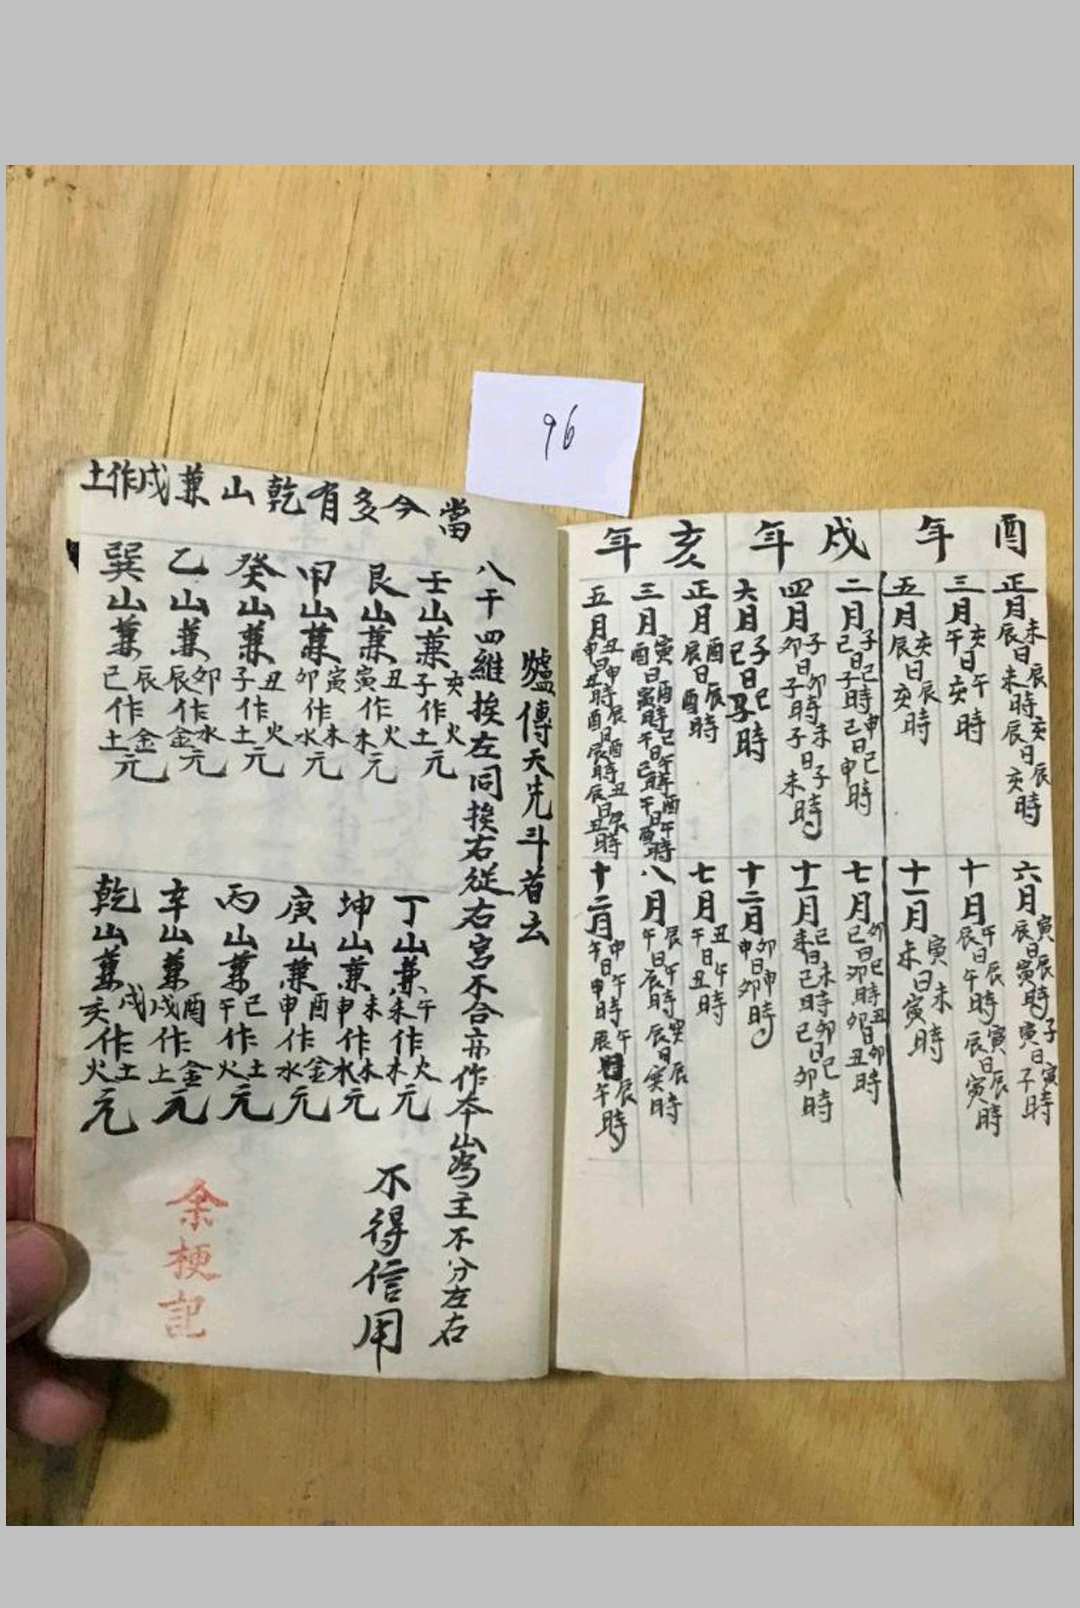 96
酉年
正月未辰亥辰日未時辰日亥時
三月亥午日午亥時
五月亥辰日辰亥時
六月寅辰日辰寅時子寅日寅子時
十月午辰日辰午時寅辰日辰寅時
十一月寅未日未寅時
戌年
二月子巳日巳子時申巳日巳申時
四月子卯日卯子時未子日子未時
六月子巳日巳子時
七月卯巳日巳卯時丑卯日卯丑時
十一月巳未日未巳時卯巳日巳卯時
十二月卯申日申卯時
亥年
正月酉辰日辰酉時
三月寅酉日酉寅時
五月丑申日申丑時
七月丑午日午丑時
八月辰午日午辰時
十二月申午日午申時
爐傳天光斗首云
八干四維挨左同挨右從右宮不合亦作本山為主不分左右
不得信用
當今多有乾山兼戌作土
壬山兼亥子作火土元
艮山兼丑寅作火木元
甲山兼寅卯作木水元
癸山兼丑子作火土元
乙山兼卯辰作水金元
巽山兼辰巳作金土元
丁山兼午未作火木元
坤山兼未申作木水元
庚山兼酉申作金水元
丙山兼巳午作土火元
辛山兼酉戌作金土元
乾山兼戌亥作土火元
余梗記